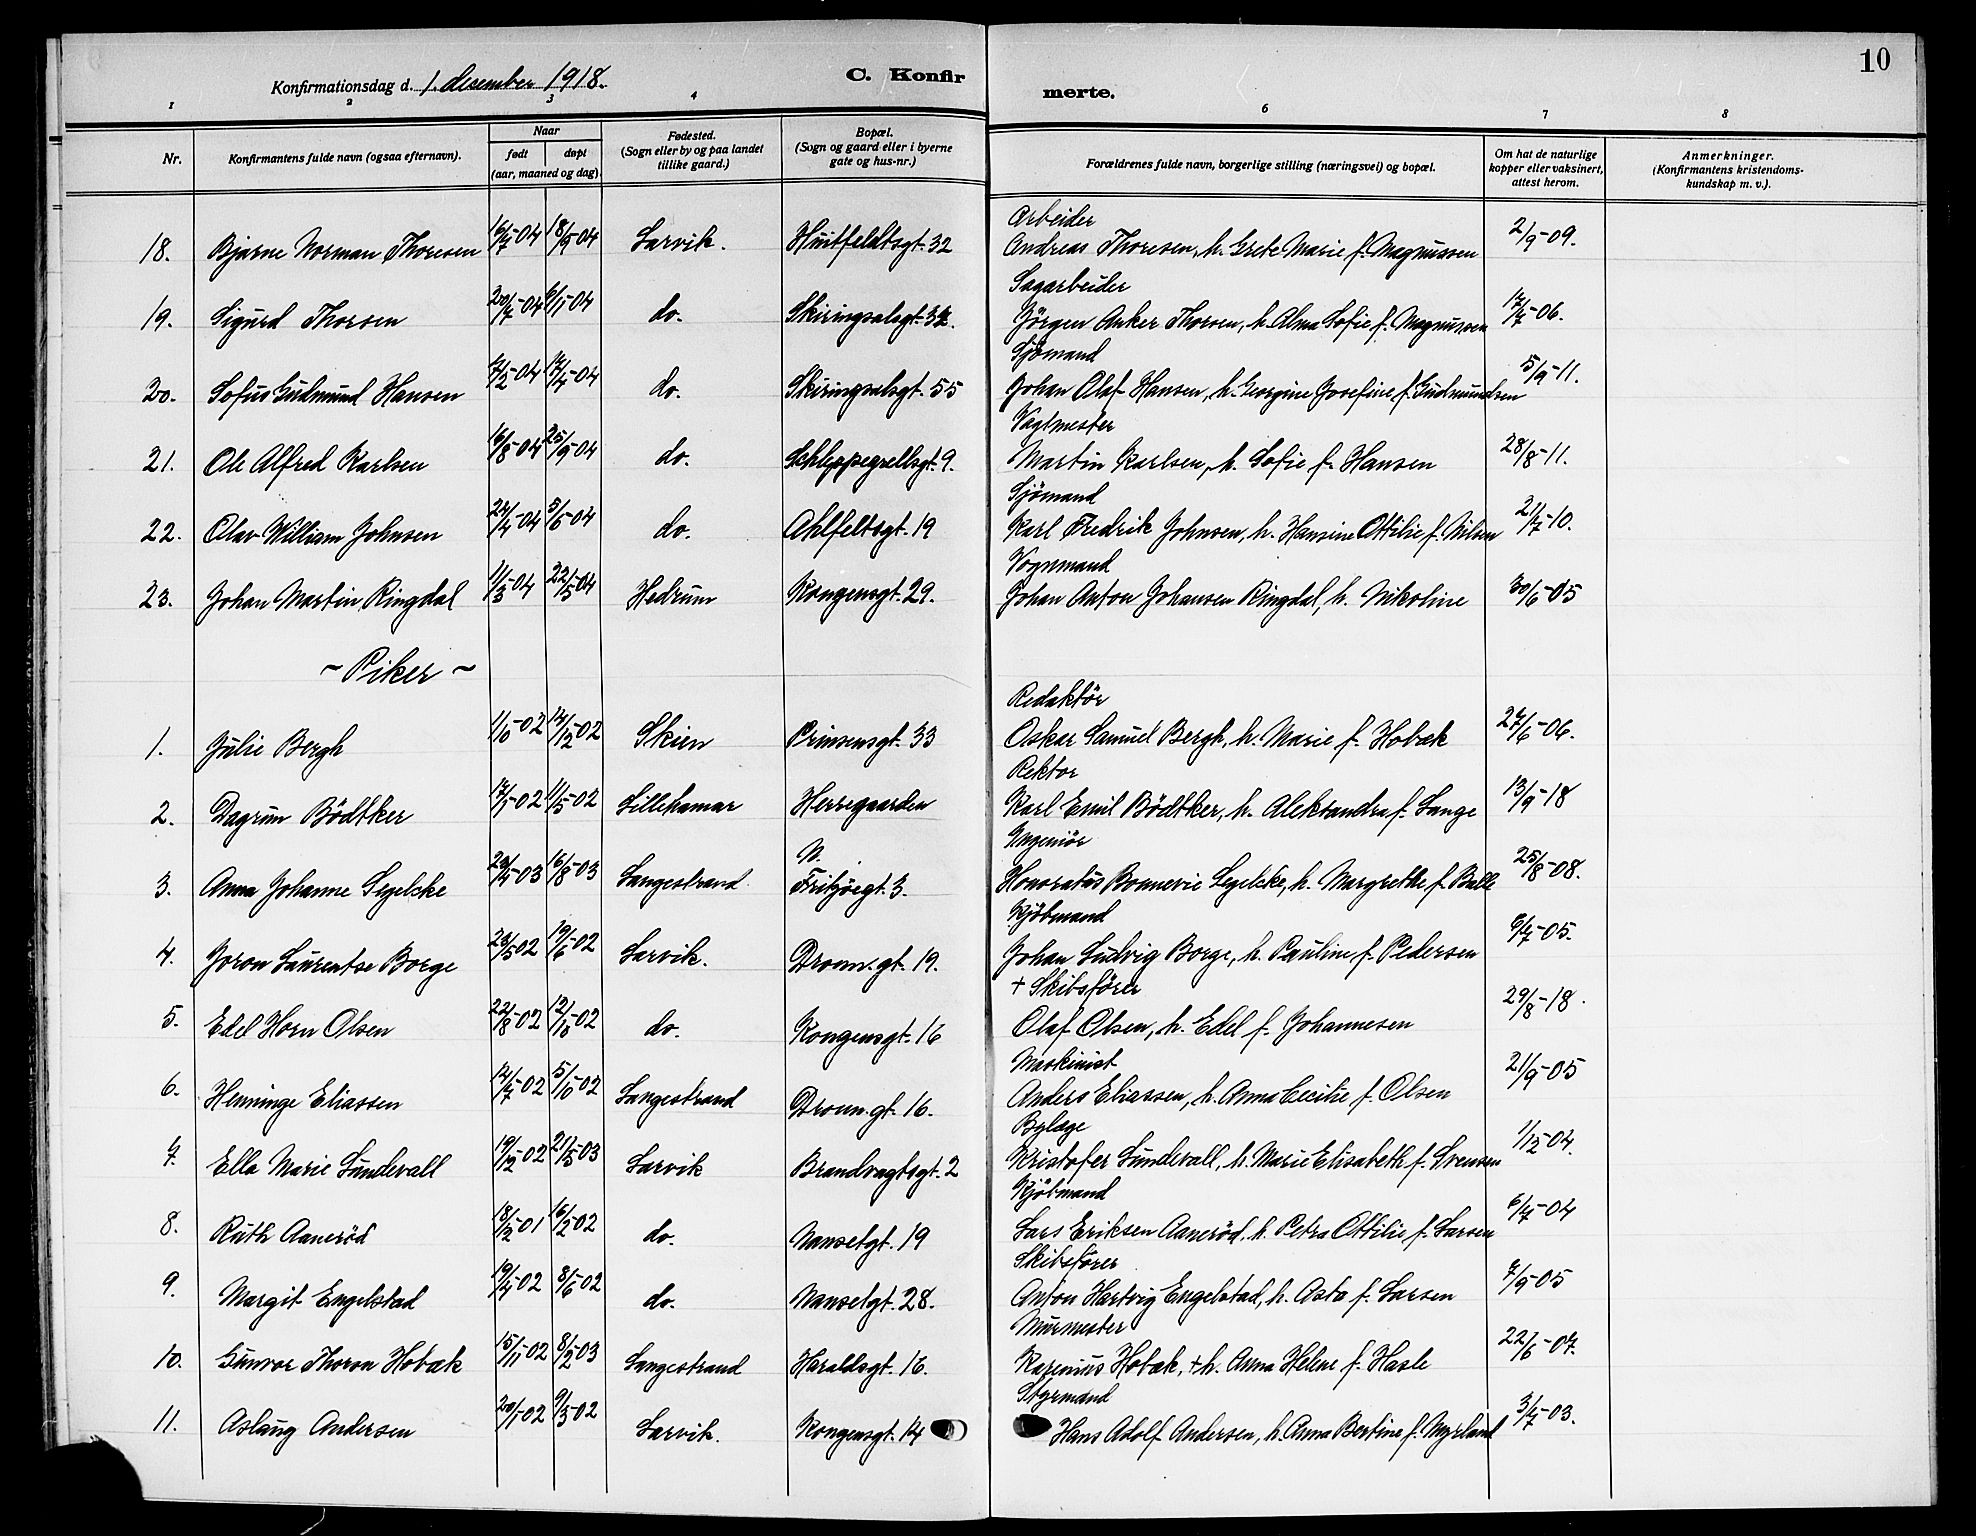 10
Konfirmationsdag d. 1. desember 1918.
C. Konfir
merte.
1 2 3 4 5 6 7 8
Nr.
Konfirmantens fulde navn (ogsaa efternavn).
Naar
født
døpt
(aar, maaned og dag).
Fødested.
(Sogn eller by og paa landet
tillike gaard.)
Bopæl.
(Sogn og gaard eller i byerne
gate og hus-nr.)
Forældrenes fulde navn, borgerlige stilling (næringsvei) og bopæl.
Om hat de naturlige
kopper eller vaksinert,
attest herom.
Anmerkninger.
(Konfirmantens kristendoms-
kundskap m. v.).
Arbeider
18. Bjarne Norman Thoresen 16/7-04 18/9-04 Larvik. Huitfeldtsgt. 32 Andreas Thoresen, h. Grete Marie f. Magnussen 2/9-09.
Sagarbeider
19. Sigurd Thorsen 20/7-04 6/11-04 do. Skiringsalsgt. 32. Jörgen Anker Thorsen, h. Alma Sofie f. Magnussen 17/7-06.
Sjömand
20. Sofus Gudmund Hansen 7/2-04 17/4-04 do. Skiringsalsgt. 55 Johan Olaf Hansen, h. Georgine Josefine f. Gudmundsen 5/9-11.
Vagtmester
21. Ole Alfred Karlsen 16/8-04 25/9-04 do. Schleppegrellsgt. 9. Martin Karlsen, h. Sofie f. Hansen 28/8-11.
Sjömand
22. Olav William Johnsen 24/4-04 5/6-04 do. Ahlfeltsgt. 19 Karl Fredrik Johnsen, h. Hansine Ottilie f. Nilsen 21/7-10.
Vognmand
23. Johan Martin Ringdal 11/3-04 22/5-04 Hedrum Kongensgt. 29. Johan Anton Johansen Ringdal, h. Nikoline 30/6-05
~ Piker ~
Redaktör
1. Julie Bergh 1/10-02 14/12-02 Skien Prinsensgt. 33 Oskar Samuel Bergh, h. Marie f. Hobæk 27/6-06.
Rektor
2. Dagrun Bödtker 17/1-02 11/5-02 Lillehamar Herregaarden Karl Emil Bödtker, h. Aleksandra f. Lange 13/9-18
Ingeniör
3. Anna Johanne Legelcke 23/4-03 16/8-03 Langestrand. N. Fritzöegt. 3. Honoratus Bonnevie Legelcke, h. Margrethe f. Balle 25/8-08.
Kjöbmand
4. Joron Laurentse Borge 23/5 02 19/6-02 Larvik. Dronn. gt. 19. Johan Ludvig Borge, h. Pauline f. Pedersen 6/7-05.
+ Skibsförer
5. Edel Horn Olsen 22/8-02 12/10-02 do. Kongensgt. 16 Olaf Olsen, h. Edel f. Johannesen 29/8-18.
Maskinist
6. Henninge Eliassen 14/7-02 5/10-02 Langestrand Dronn. gt. 16. Anders Eliassen, h. Anna Cecilie f. Olsen 21/9-05
Bylæge
7. Ella Marie Lundevall 19/12-02 21/5-03 Larvik Brandvagtsgt. 2 Kristofer Lundevall, h. Marie Elisabeth f. Svensen 1/12-04.
Kjöbmand
8. Ruth Aanerød 18/12-01 16/2-02 do. Nansetgt. 19 Lars Eriksen Aanerød, h. Petra Ottilie f. Larsen 6/7-04
Skibsförer
9. Margit Engelstad 19/4-02 8/6-02 do. Nansetgt. 28. Anton Hartvig Engelstad, h. Asta f. Larsen 7/9-05
Murmester
10. Gunvor Thoron Hobæk 15/11-02 8/2-03 Langestrand Haraldsgt. 16. Rasmus Hobæk, +h. Anna Helene f. Hasle 22/6-07.
Styrmand
11. Aslaug Andersen 20/1-02 9/3-02 Larvik. Kongensgt. 14 Hans Adolf Andersen, h. Anna Bertine f. Myrland 3/7-03.